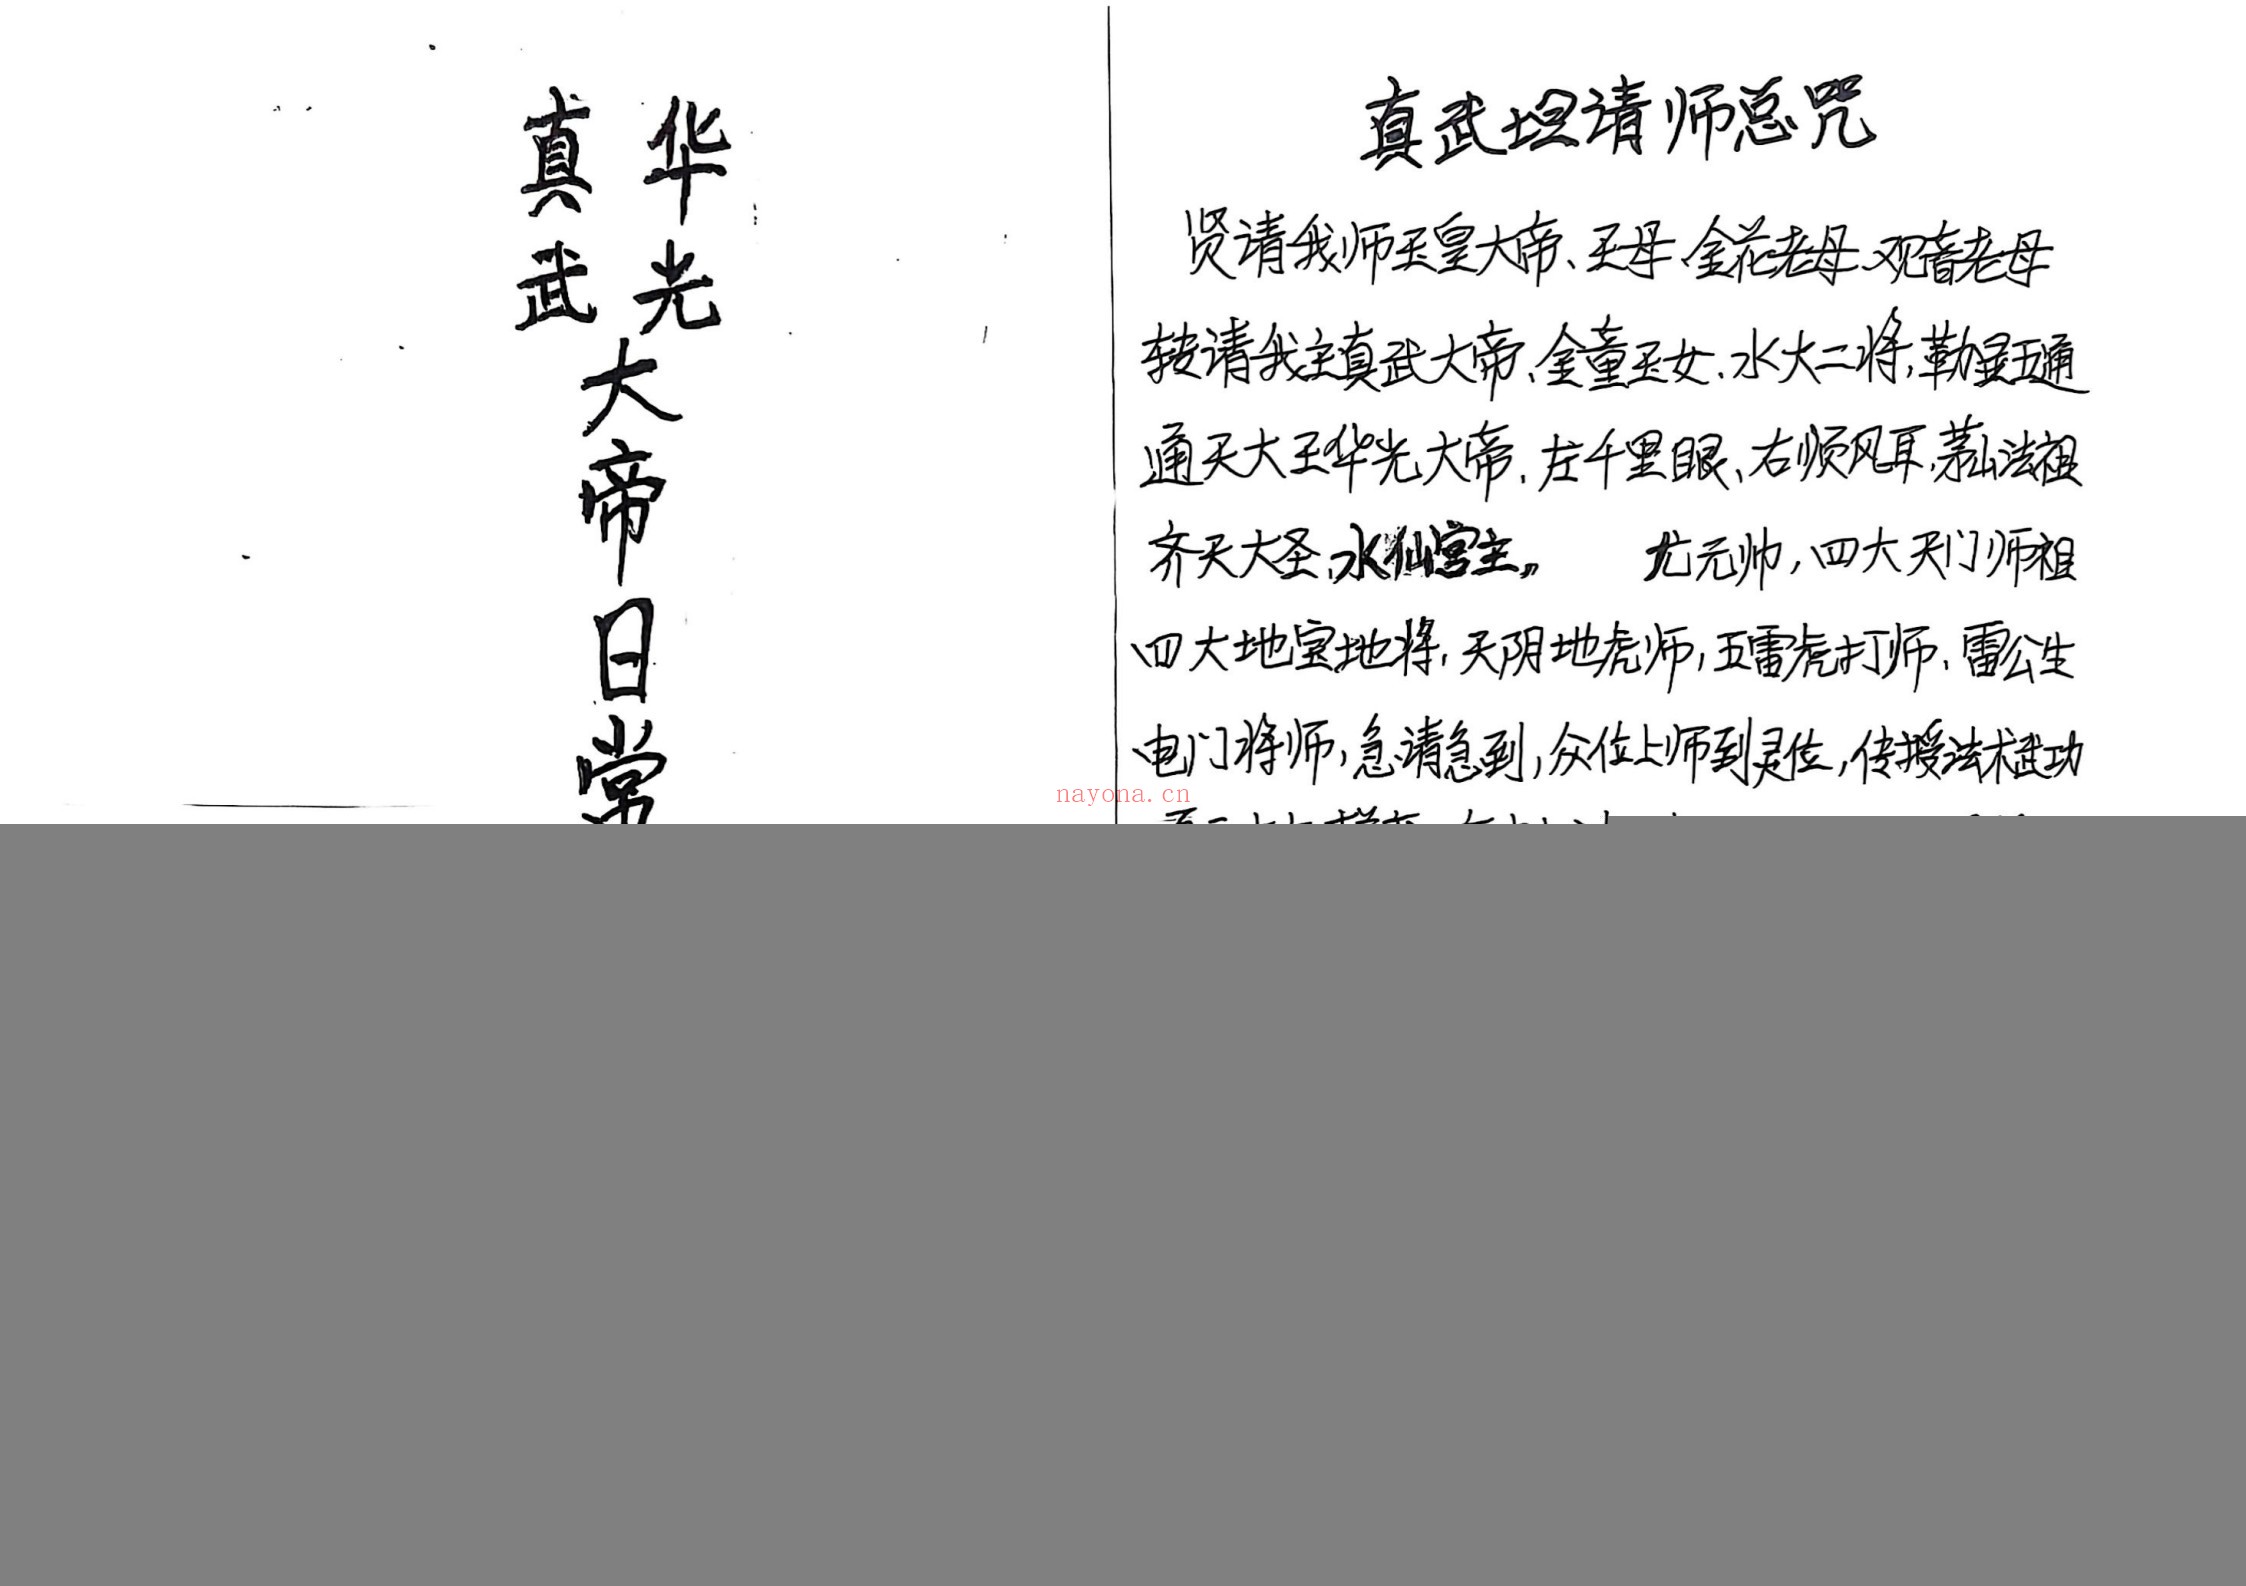 华光
真武
大帝日常
真武坛请师总咒
贤请我师玉皇大帝、王母 金花老母 观音老母
转请我主真武大帝、金童玉女、水大二将，勒显五通
通天大王华光大帝、左千里眼、右顺风耳，茅山法祖
齐天大圣、水仙宫主。 尤元帅，四大天门师祖
四大地宝地将，天阴地虎师，五雷虎打师、雷公生
电门将师，急请急到，众位上师到灵位，传授法术武功
nayona.cn